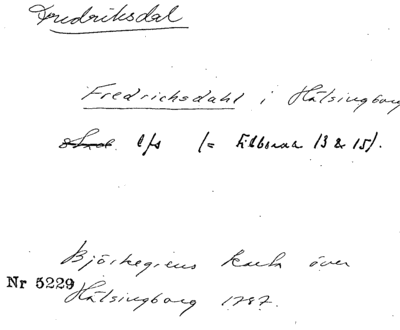 Fredriksdal
Fredrichsdahl i Hälsingborg
lfs (= Filborna 13 & 15).
Björkegrens karta över
Nr 5229
Hälsingborg 1787.